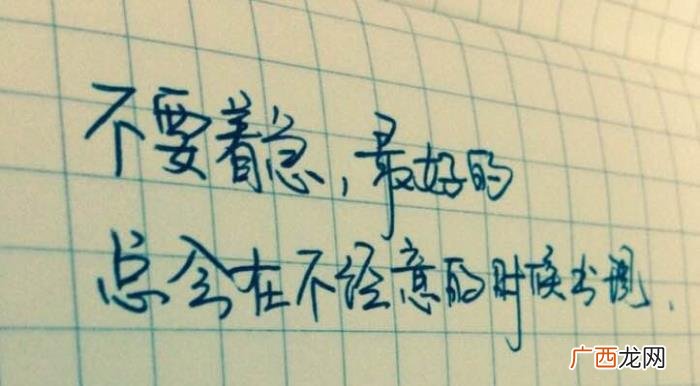 不要着急,最好的
总会在不经意的时候出现.
广西龙网